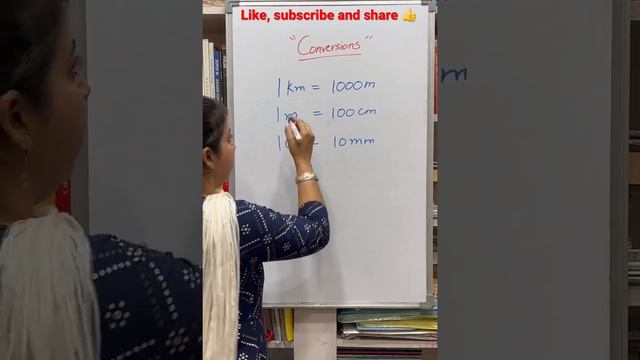 Like, subscribe and share 👍
"Conversions"
1 km = 1000m
1 m = 100 cm
1 = 10 mm
m